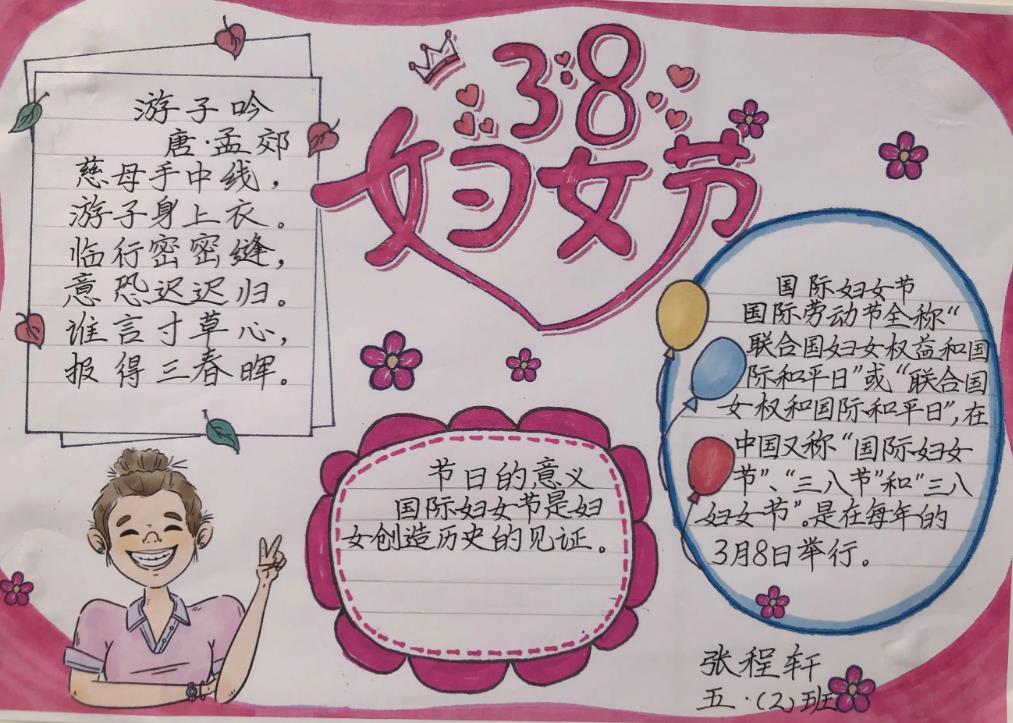 3.8
妇女节
游子吟
唐·孟郊
慈母手中线，
游子身上衣。
临行密密缝，
意恐迟迟归。
谁言寸草心，
报得三春晖。
节日的意义
国际妇女节是妇
女创造历史的见证。
国际妇女节
国际劳动节全称“
联合国妇女权益和国
际和平日”或“联合国
女权和国际和平日”，在
中国又称“国际妇女
节”、“三八节”和“三八
妇女节”。是在每年的
3月8日举行。
张程轩
五·(2)班